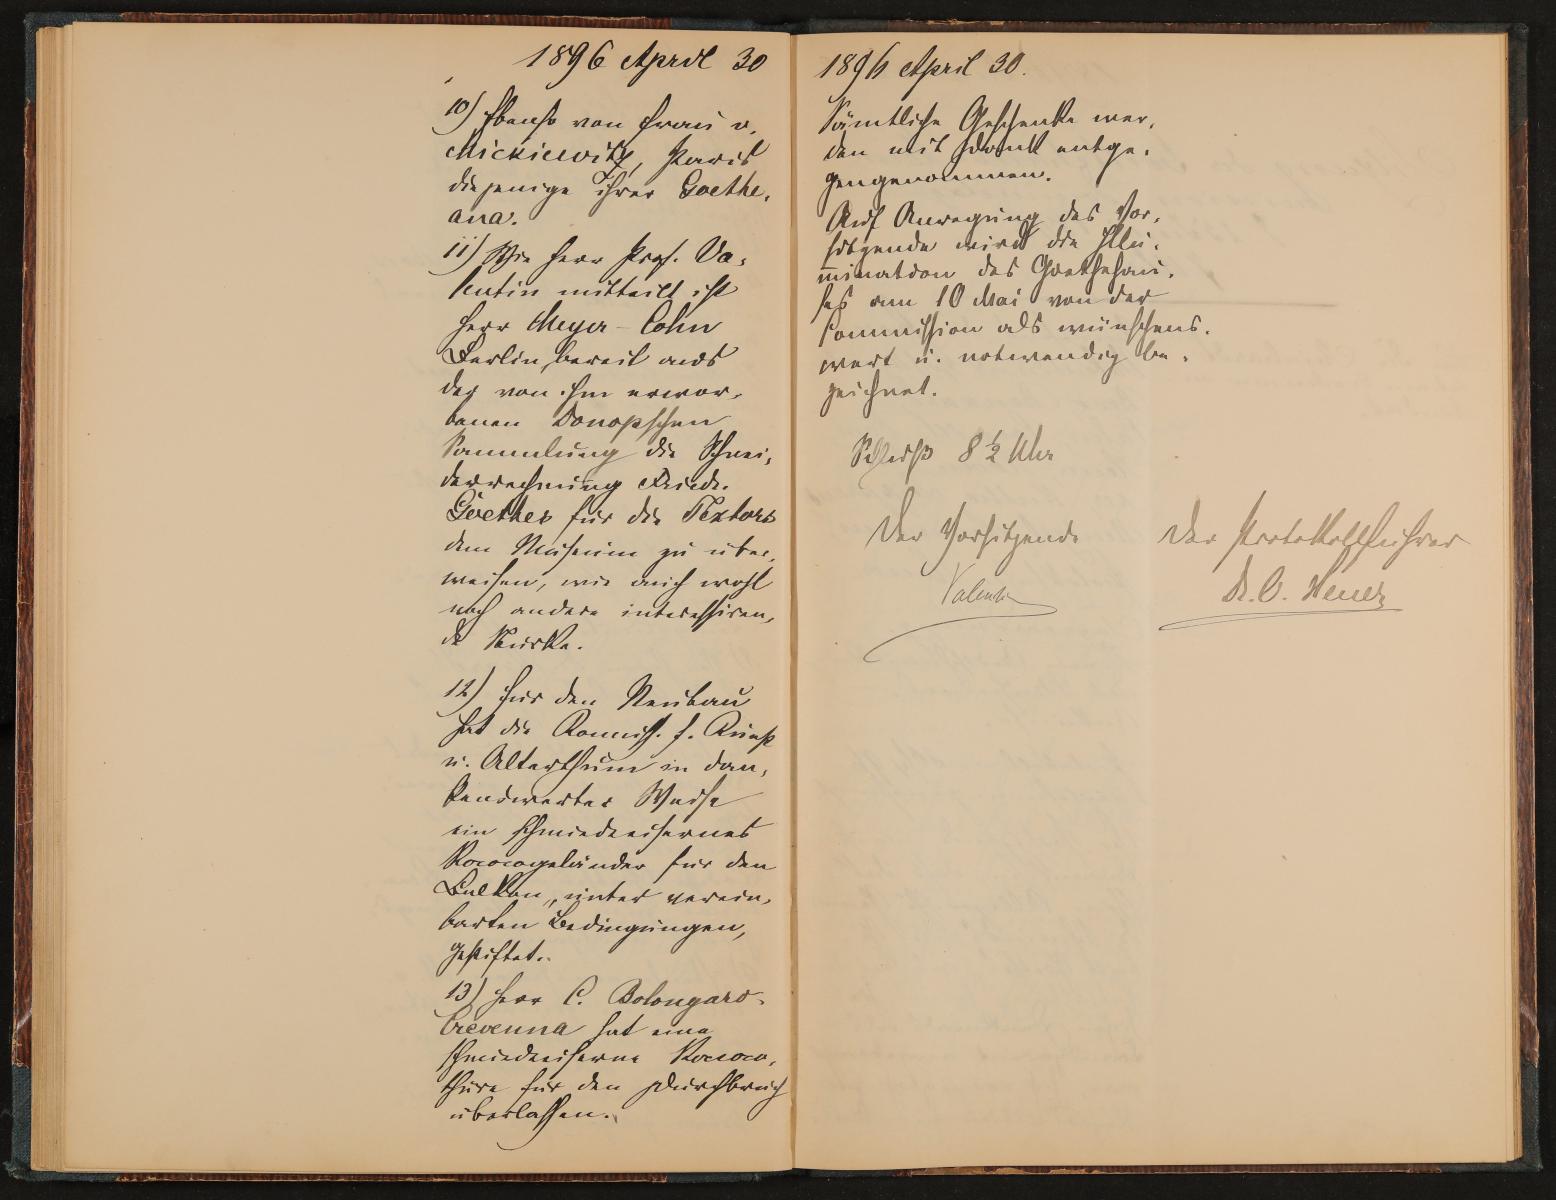 1896 April 30
10) Ebenso von Frau v.
Mickiewitz, Paris
diejenige ihrer Goethe-
ana.
11) Wie Herr Prof. Va-
lentin mitteilt ist
Herr Meyer-Cohn
Berlin, bereit aus
der von ihm erwor-
benen Donopschen
Sammlung die Schnei-
derrechnung Friedr.
Goethes für die Textors
dem Museum zu über-
weisen, wie auch wohl
noch andere interessiren-
de Stücke.
12) Für den Neubau
hat die Kommiss. f. Kunst
u. Alterthum in dan-
kenswerter Weise
ein schmiedeeisernes
Rococogeländer für den
Balkon, unter verein-
barten Bedingungen,
gestiftet.
13) Herr C. Bolongaro-
Crevenna hat eine
schmiedeeiserne Rococo-
thüre für den Durchbruch
überlassen.
1896 April 30.
Sämtliche Geschenke wer-
den mit Dank entge-
gengenommen.
Auf Anregung des Vor-
sitzende wird die Illu-
mination des Goethehau-
ses am 10 Mai von der
Commission als wünschens-
wert u. notwendig be-
zeichnet.
Schluß 8 1/2 Uhr
Der Vorsitzende
Valentin
Der Protokollführer
Dr. O. Heuer